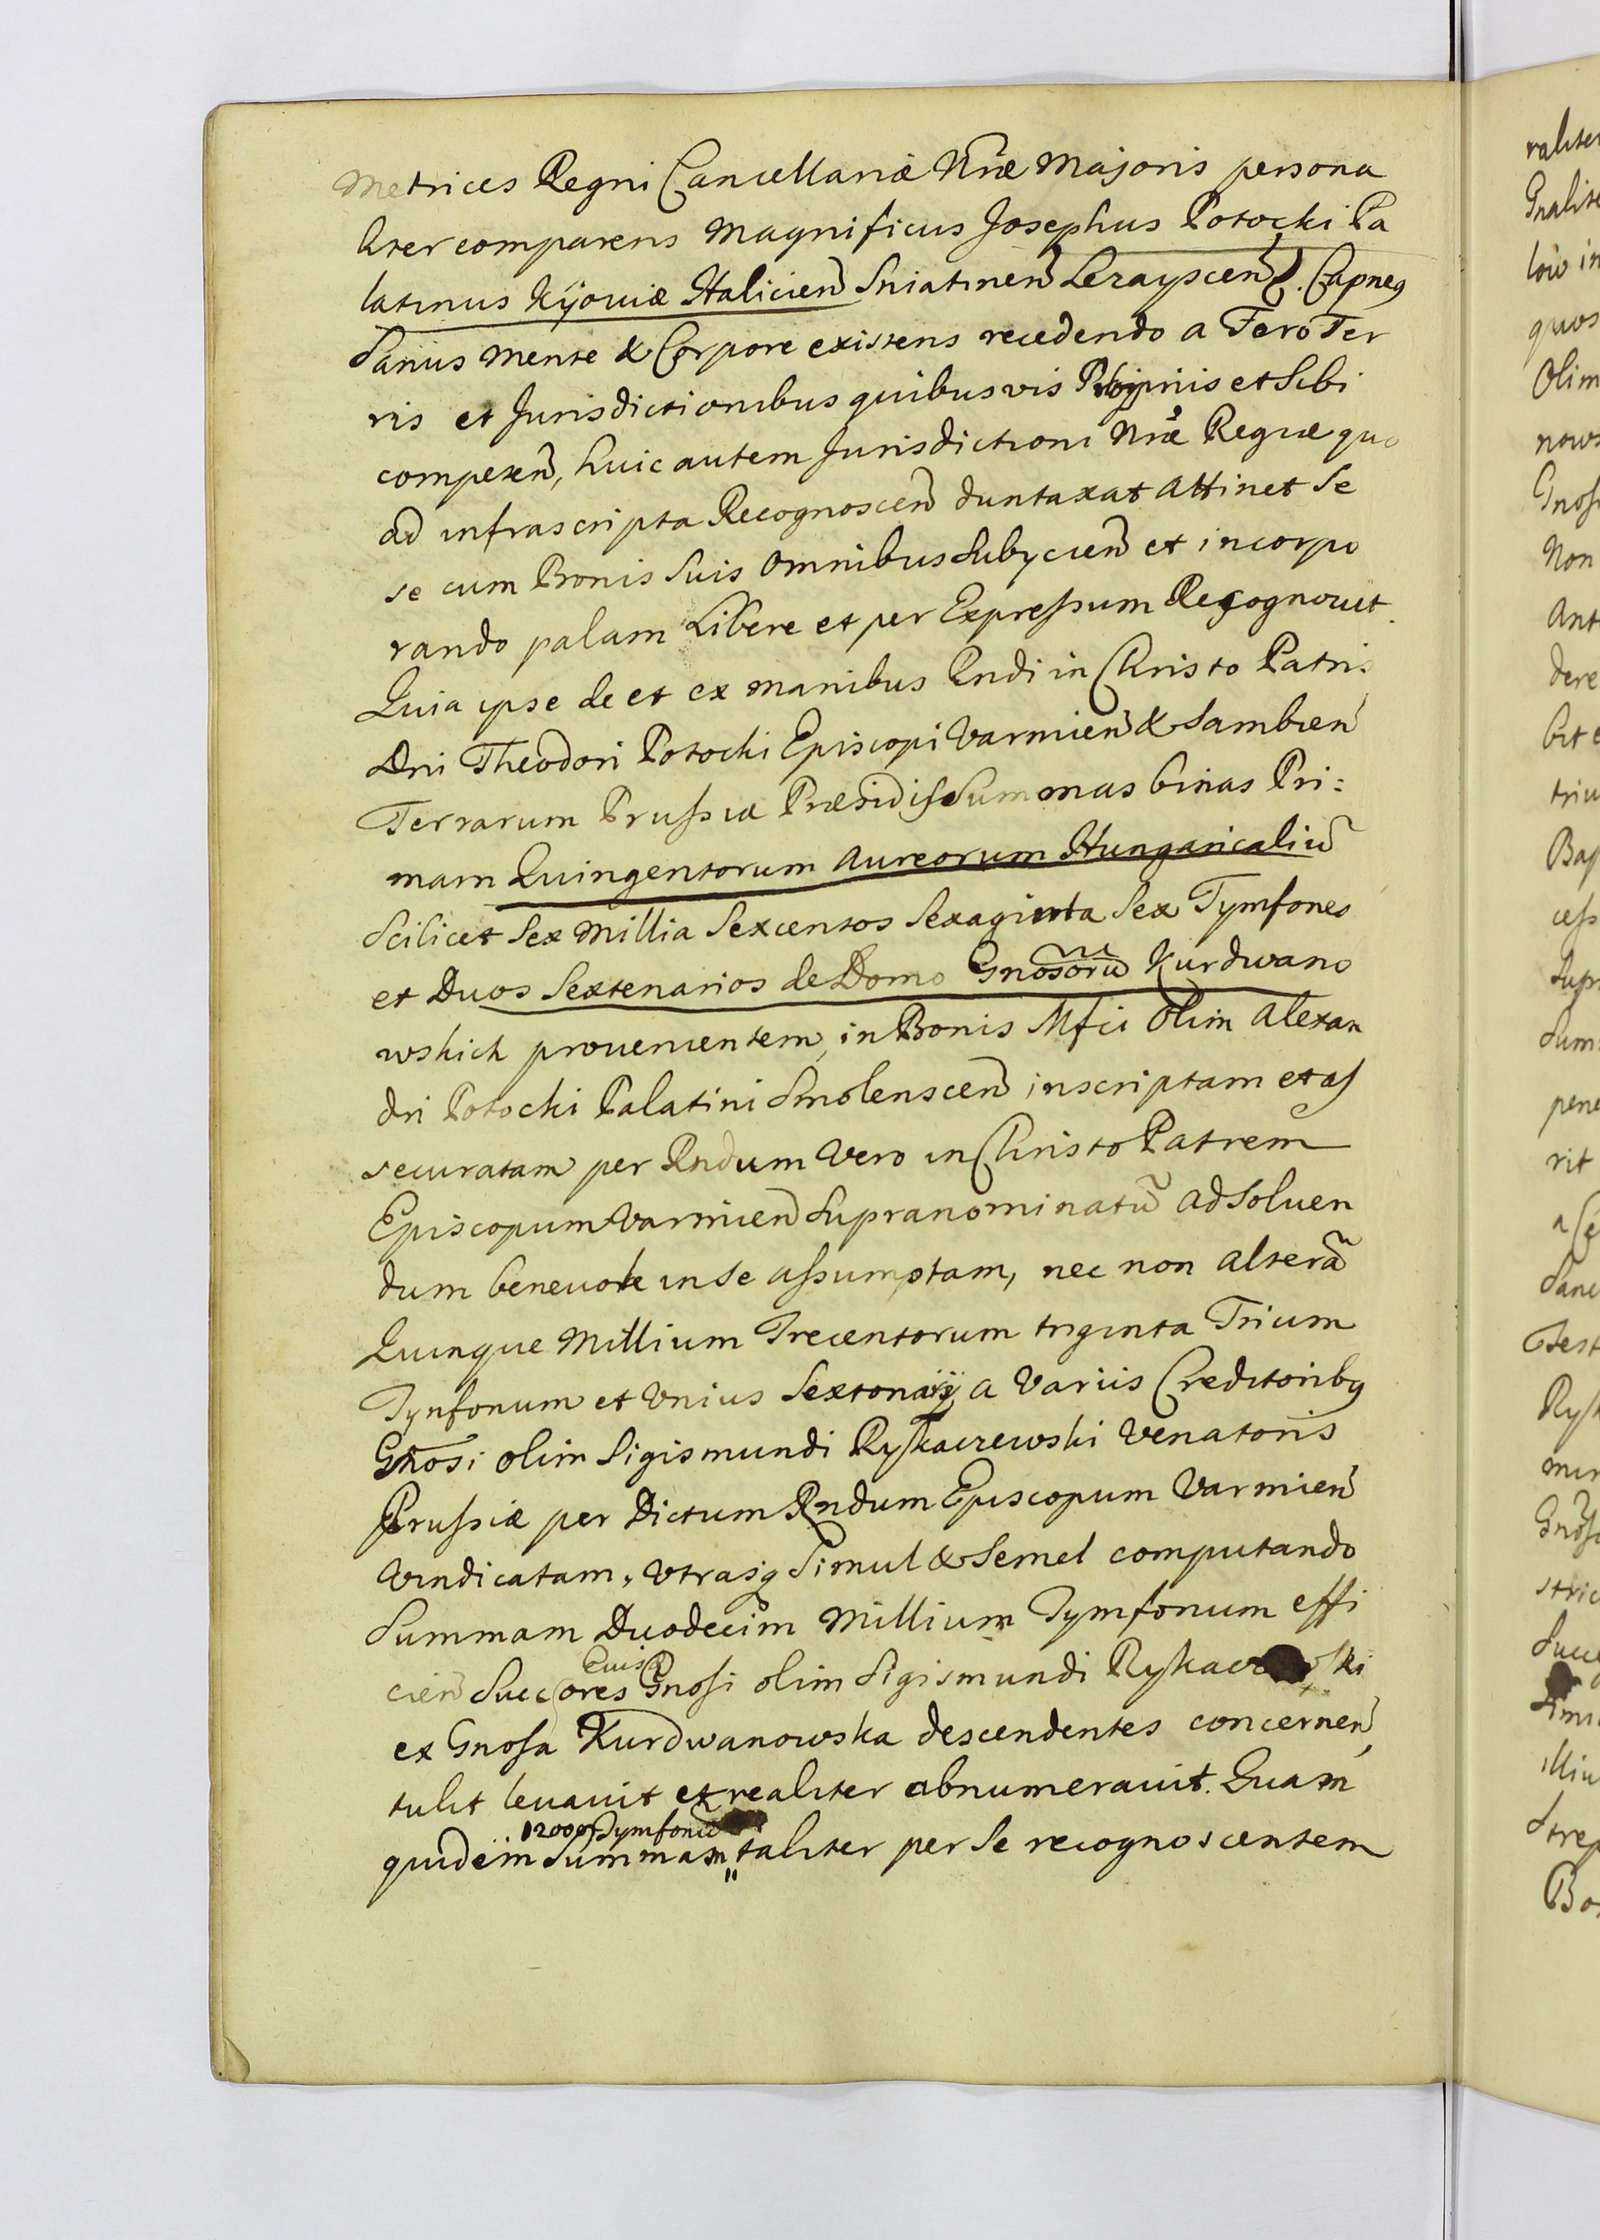 Metrices Regni Cancellariæ Nr̃æ Majoris persona
liter comparens Magnificus Josephus Potocki Pa
latinus Kijoviæ Halicieñ Sniatineñ Lezaysceñ &. Capneus
Sanus Mente & Corpore existens recedendo a Foro Ter
ris et Jurisdictionibus quibusvis et Sibi
competeñ, huic autem Jurisdictioni Nr̃æ Regiæ quo
ad infrascripta Recognosceñ duntaxat Attinet Se
se cum Bonis Suis Omnibus Subijcieñ et incorpo
rando palam Libere et per Expressum Recognovit.
Quia ipse de et ex manibus Rndi in Christo Patris
Dni Theodori Potocki Episcopi Varmieñ & Sambieñ
Terrarum Prussiæ Præsidis Summas binas Pri:
mam Quingentorum Aureorum Hungaricaliũ
Scilicet Sex Millia Sexcentos Sexaginta Sex Tymfones
et Duos Sextenarios de Domo Gnosorũ Kurdwano
wskich provenientem, in Bonis Mfci Olim Alexan
dri Potocki Palatini Smolensceñ inscriptam et as
securatam per Rndum Vero in Christo Patrem
Episcopum Varmieñ Supranominatũ ad Soluen
dum benevole in Se assumptam, nec non alterã
Quinque Millium Trecentorum triginta Trium
Tynfonum et Unius Sextonarij a Variis Creditoribus
Gnosi olim Sigismundi Ryskaczewski Venatoris
Prussiæ per Dictum Rndum Episcopum Varmieñ
Vindicatam, Utrasq Simul & Semel computando
Summam Duodecim Millium Tymfonum effi
Eius
cieñ Succores Gnosi olim Sigismundi
ex Gnosa Kurdwanowska descendentes concerneñ,
tulit levavit et realiter abnumeravit. Quam
12000 Tymfonũ
quidem Summam taliter per Se recognoscentem